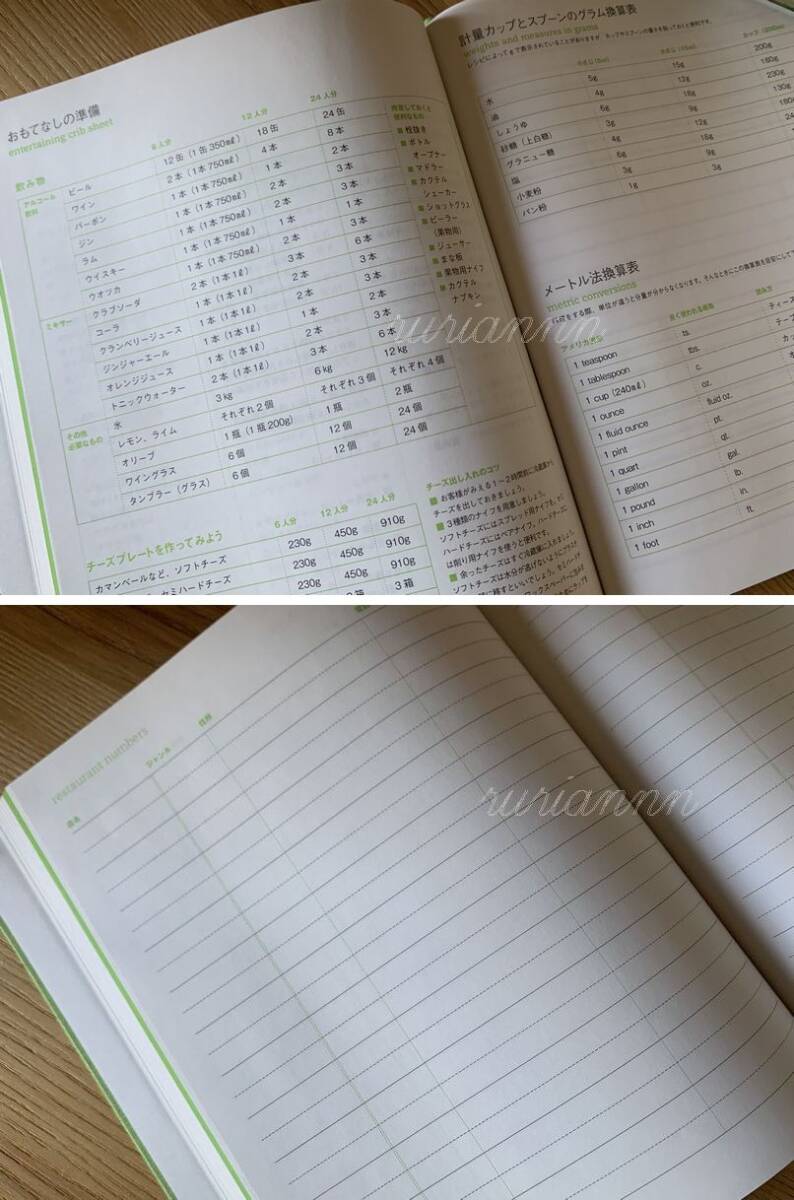 おもてなしの準備
entertaining crib sheet
6人分 12人分 24人分
飲み物
アルコール飲料
ビール 12缶(1缶350mℓ) 18缶 24缶
ワイン 2本(1本750mℓ) 4本 8本
バーボン 1本(1本750mℓ) 1本 2本
ジン 1本(1本750mℓ) 2本 3本
ラム 1本(1本750mℓ) 2本 3本
ウイスキー 1本(1本750mℓ) 1本 1本
ウオッカ 1本(1本750mℓ) 2本 3本
ミキサー
クラブソーダ 2本(1本1ℓ) 3本 6本
コーラ 1本(1本1ℓ) 2本 3本
クランベリージュース 1本(1本1ℓ) 1本 2本
ジンジャーエール 1本(1本1ℓ) 1本 2本
オレンジジュース 1本(1本1ℓ) 2本 3本
トニックウォーター 2本(1本1ℓ) 3本 6本
その他必要なもの
氷 3kg 6kg 12kg
レモン、ライム それぞれ2個 それぞれ3個 それぞれ4個
オリーブ 1瓶(1瓶200g) 1瓶 2瓶
ワイングラス 6個 12個 24個
タンブラー(グラス) 6個 12個 24個
用意しておくと
便利なもの
■栓抜き
■ボトル
オープナー
■マドラー
■カクテル
シェーカー
■ショットグラス
■ピーラー
(果物用)
■ジューサー
■まな板
■果物用ナイフ
■カクテル
ナプキン
チーズプレートを作ってみよう
6人分 12人分 24人分
カマンベールなど、ソフトチーズ 230g 450g 910g
セミハードチーズ 230g 450g 910g
3箱
チーズ出し入れのコツ
■お客様がみえる1〜2時間前に冷蔵庫から
チーズを出しておきましょう。
■3種類のナイフを用意しましょう。
ソフトチーズにはスプレッド用ナイフを、
ハードチーズにはペアナイフ、ハードチーズに
は削り用ナイフを使うと便利です。
■余ったチーズはすぐ冷蔵庫に入れましょう。
ソフトチーズは水分が逃げないように
計量カップとスプーンのグラム換算表
weights and measures in grams
水 5g 15g 200g
油 4g 12g 180g
しょうゆ 6g 18g 230g
砂糖(上白糖) 3g 9g 130g
グラニュー糖 4g 12g 180g
塩 6g 18g
小麦粉 3g 9g
パン粉 1g 3g
メートル法換算表
metric conversions
アメリカ表記 よく使われる略語 読み方
1 teaspoon ts.
1 tablespoon tbs.
1 cup (240mℓ) c.
1 ounce oz.
1 fluid ounce fluid oz.
1 pint pt.
1 quart qt.
1 gallon gal.
1 pound lb.
1 inch in.
1 foot ft.
ruriannn
restaurant numbers
店名 ジャンル 住所
ruriannn